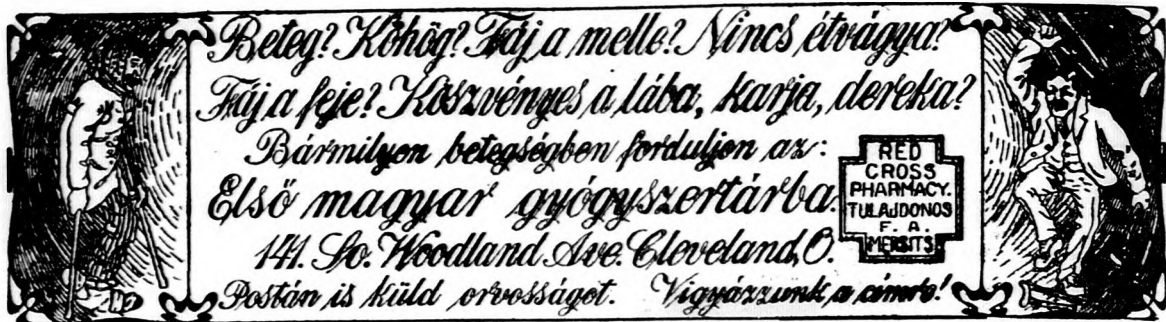 Beteg? Köhög? Fáj a melle? Nincs étvágya?
Fáj a feje? Köszvényes a lába, karja, dereka?
Bármilyen betegségben forduljon az:
Első magyar gyógyszertárba.
141. So. Woodland Ave. Cleveland, O.
Postán is küld orvosságot. Vigyázzunk a címre!
RED
CROSS
PHARMACY.
TULAJDONOS
F. A.
MERSITS